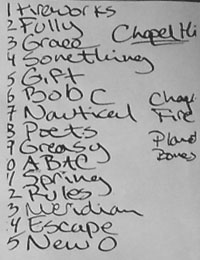 1 Fireworks
2 Fully
3 Grace
4 Something
5 Gift
6 Bob C
7 Nautical
8 Poets
9 Greasy
0 ABAC
1 Spring
2 Rules
3 Meridian
4 Escape
5 New O
Chapel Hi
Chap
Fire
Bones